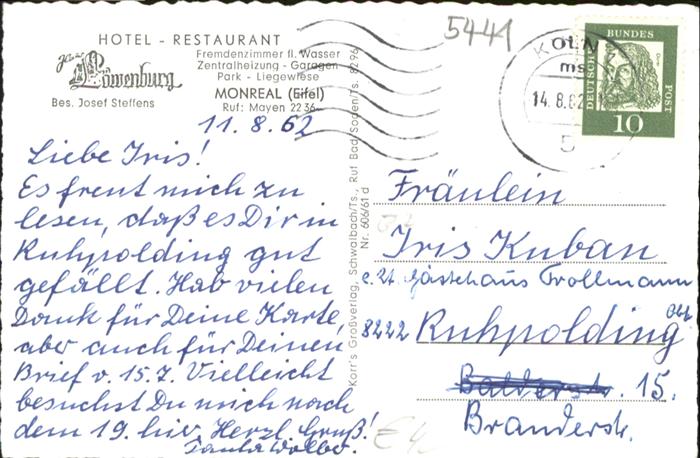 HOTEL - RESTAURANT
zur Löwenburg
Fremdenzimmer fl. Wasser
Zentralheizung - Garagen
Park - Liegewiese
Bes. Josef Steffens
MONREAL (Eifel)
Ruf: Mayen 22 36
11.8.62
Liebe Iris!
Es freut mich zu
lesen, daß es Dir in
Ruhpolding gut
gefällt. Hab vielen
Dank für Deine Karte,
aber auch für Deinen
Brief v. 15.7. Vielleicht
besuchst Du mich noch
dem 19. hier. Herzl. Gruß!
Tante
Korr's Großverlag, Schwalbach/Ts., Ruf Bad Soden/Ts. 8296
Nr. 606/61 d
5441
KÖLN
14.8.62
5
BUNDES
DEUTSCHE
POST
10
Fräulein
Iris Kuban
z. Zt. Gästehaus Trollmann
8222 Ruhpolding Obb
15.
Branderstr.